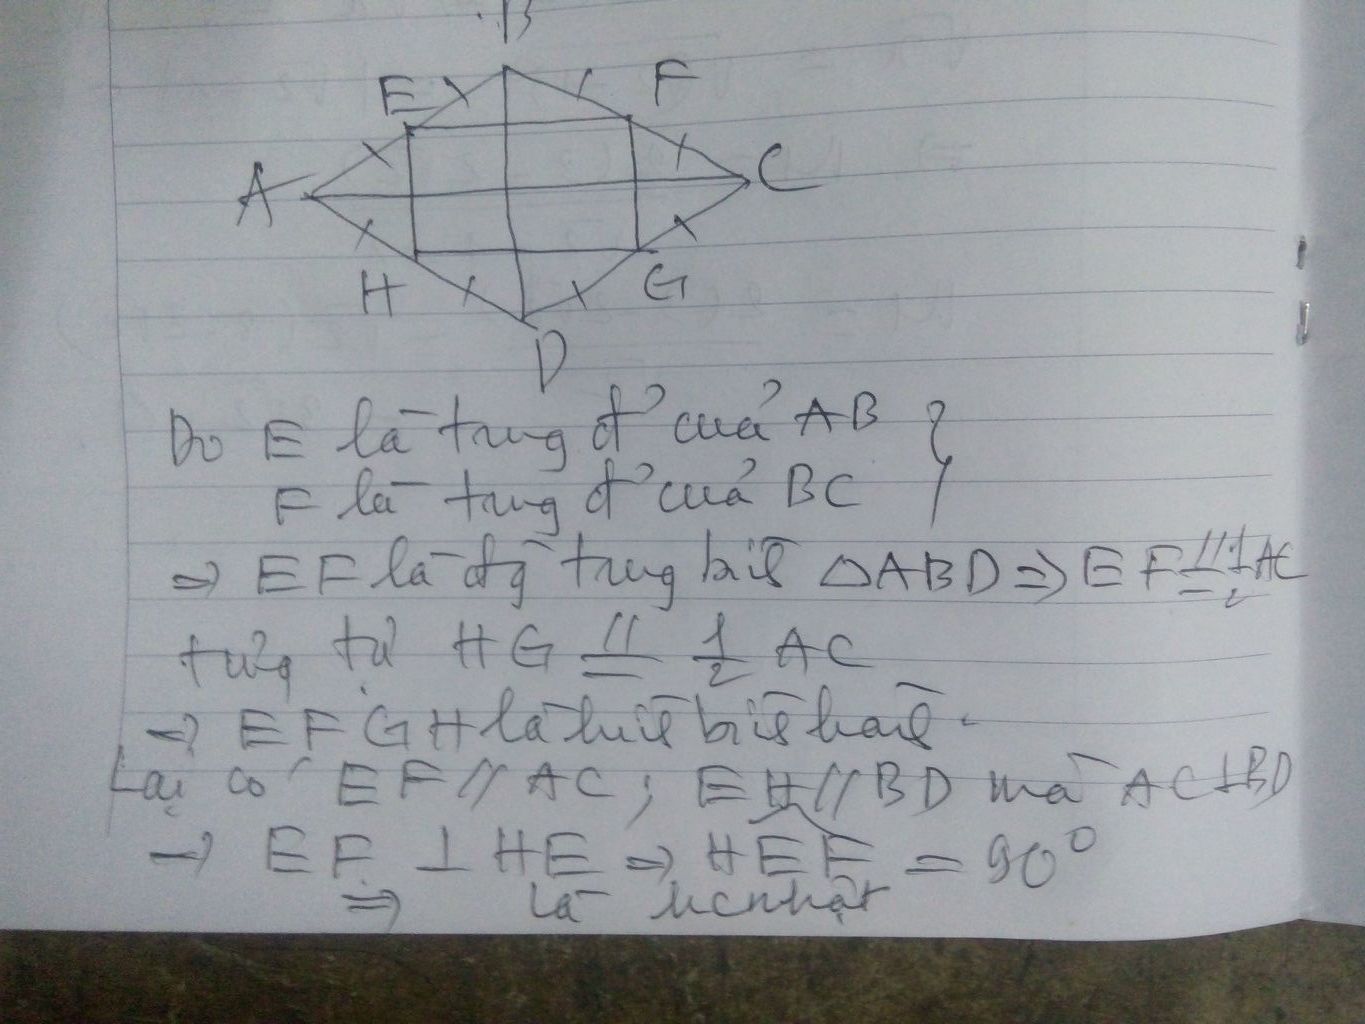 B
E F
A C
H G
D
Do E là trung đ' của AB }
F là trung đ' của BC
=> EF là đg trung bì ΔABD => EF // = 1/2 AC
tưng tự HG // = 1/2 AC
-> EFGH là hì bì hà.
Lại có EF // AC ; EH // BD mà AC ⊥ BD
-> EF ⊥ HE => HEF = 90°
=> là hcnhật